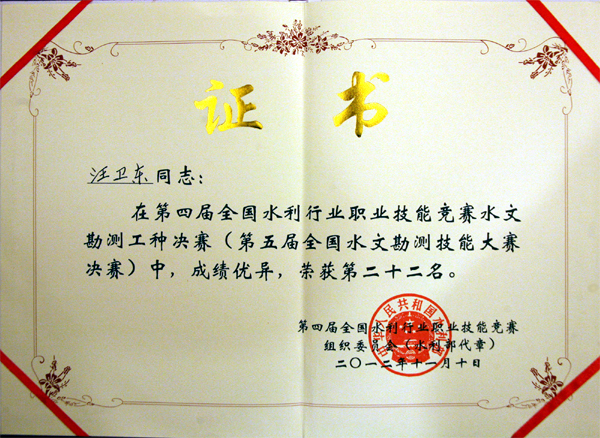 证书
汪卫东同志：
在第四届全国水利行业职业技能竞赛水文
勘测工种决赛（第五届全国水文勘测技能大赛
决赛）中，成绩优异，荣获第二十二名。
中华人民共和国水利部
第四届全国水利行业职业技能竞赛
组织委员会（水利部代章）
二〇一二年十一月十日